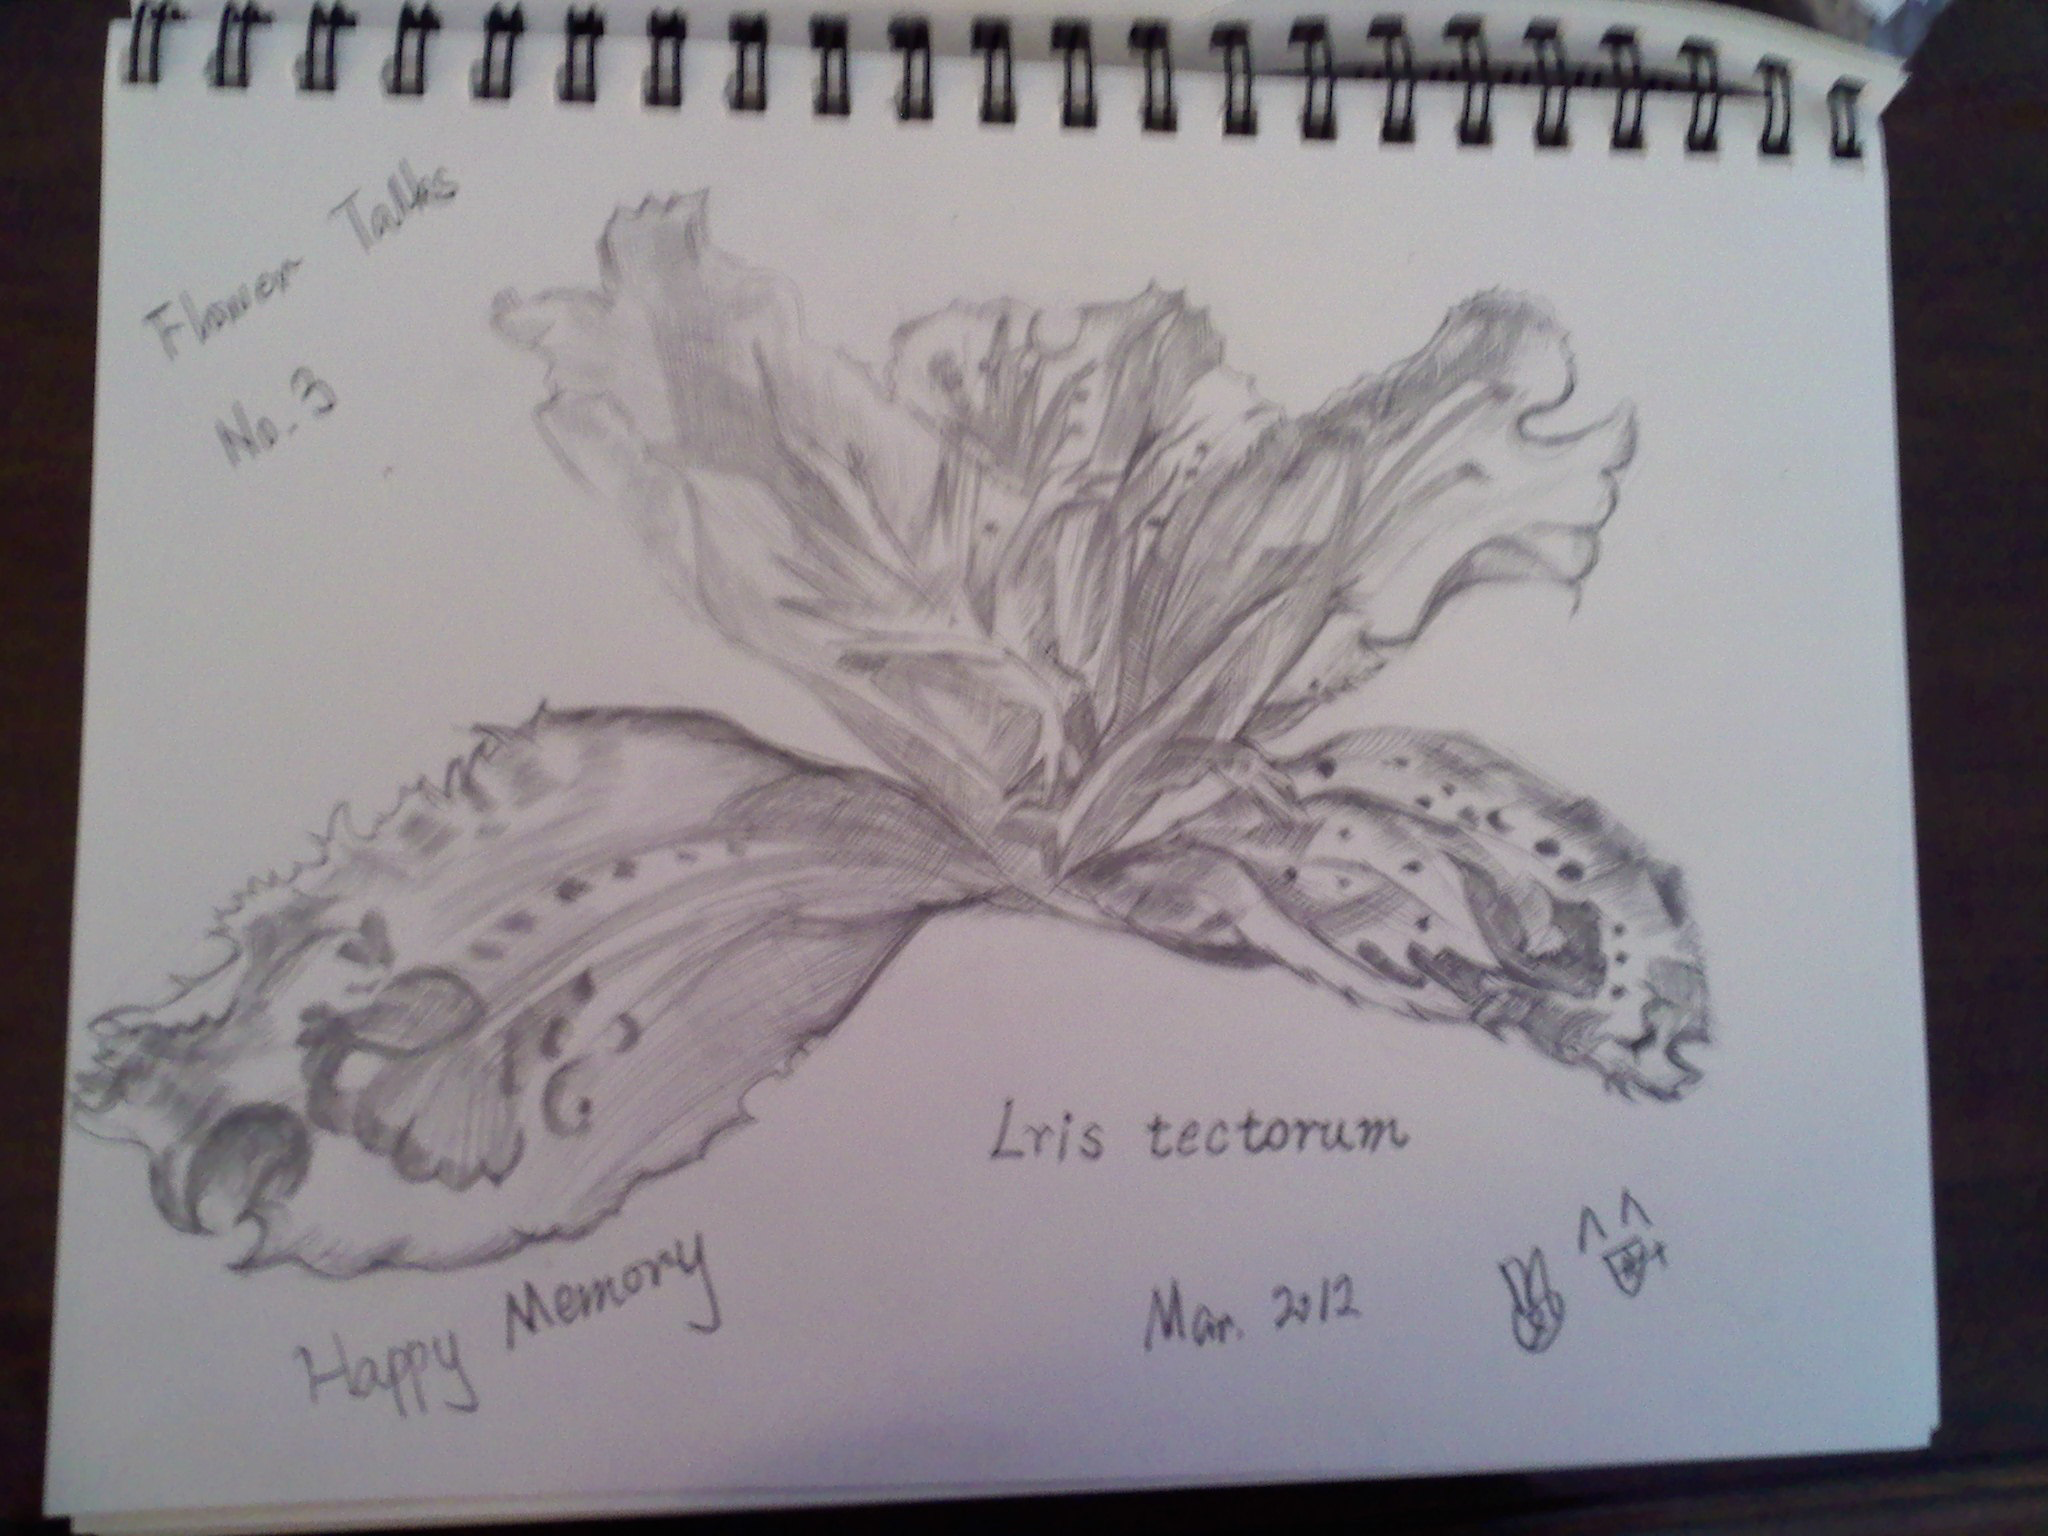 Flower Talks
No. 3
Lris tectorum
Happy Memory
Mar. 2012